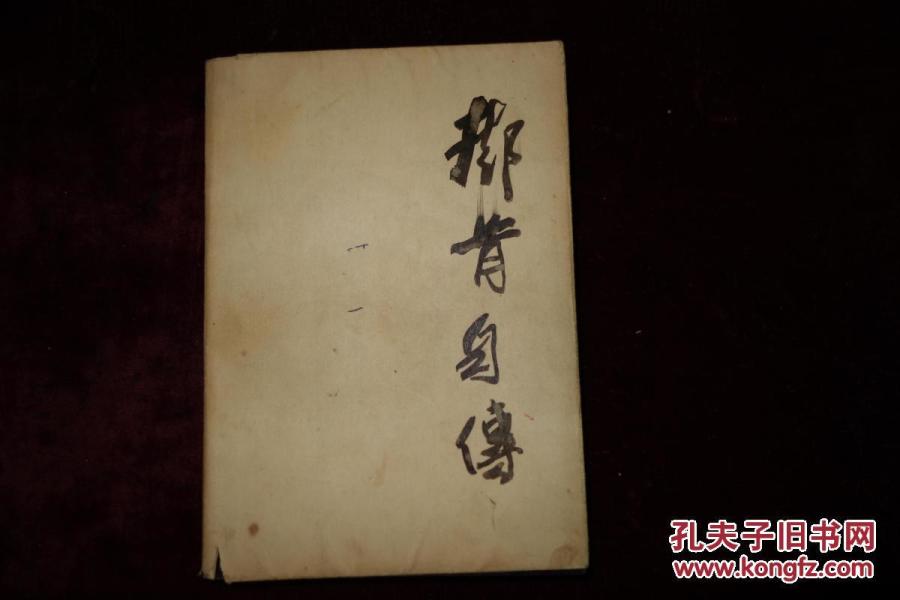 鄧肯自傳
孔夫子旧书网
www.kongfz.com